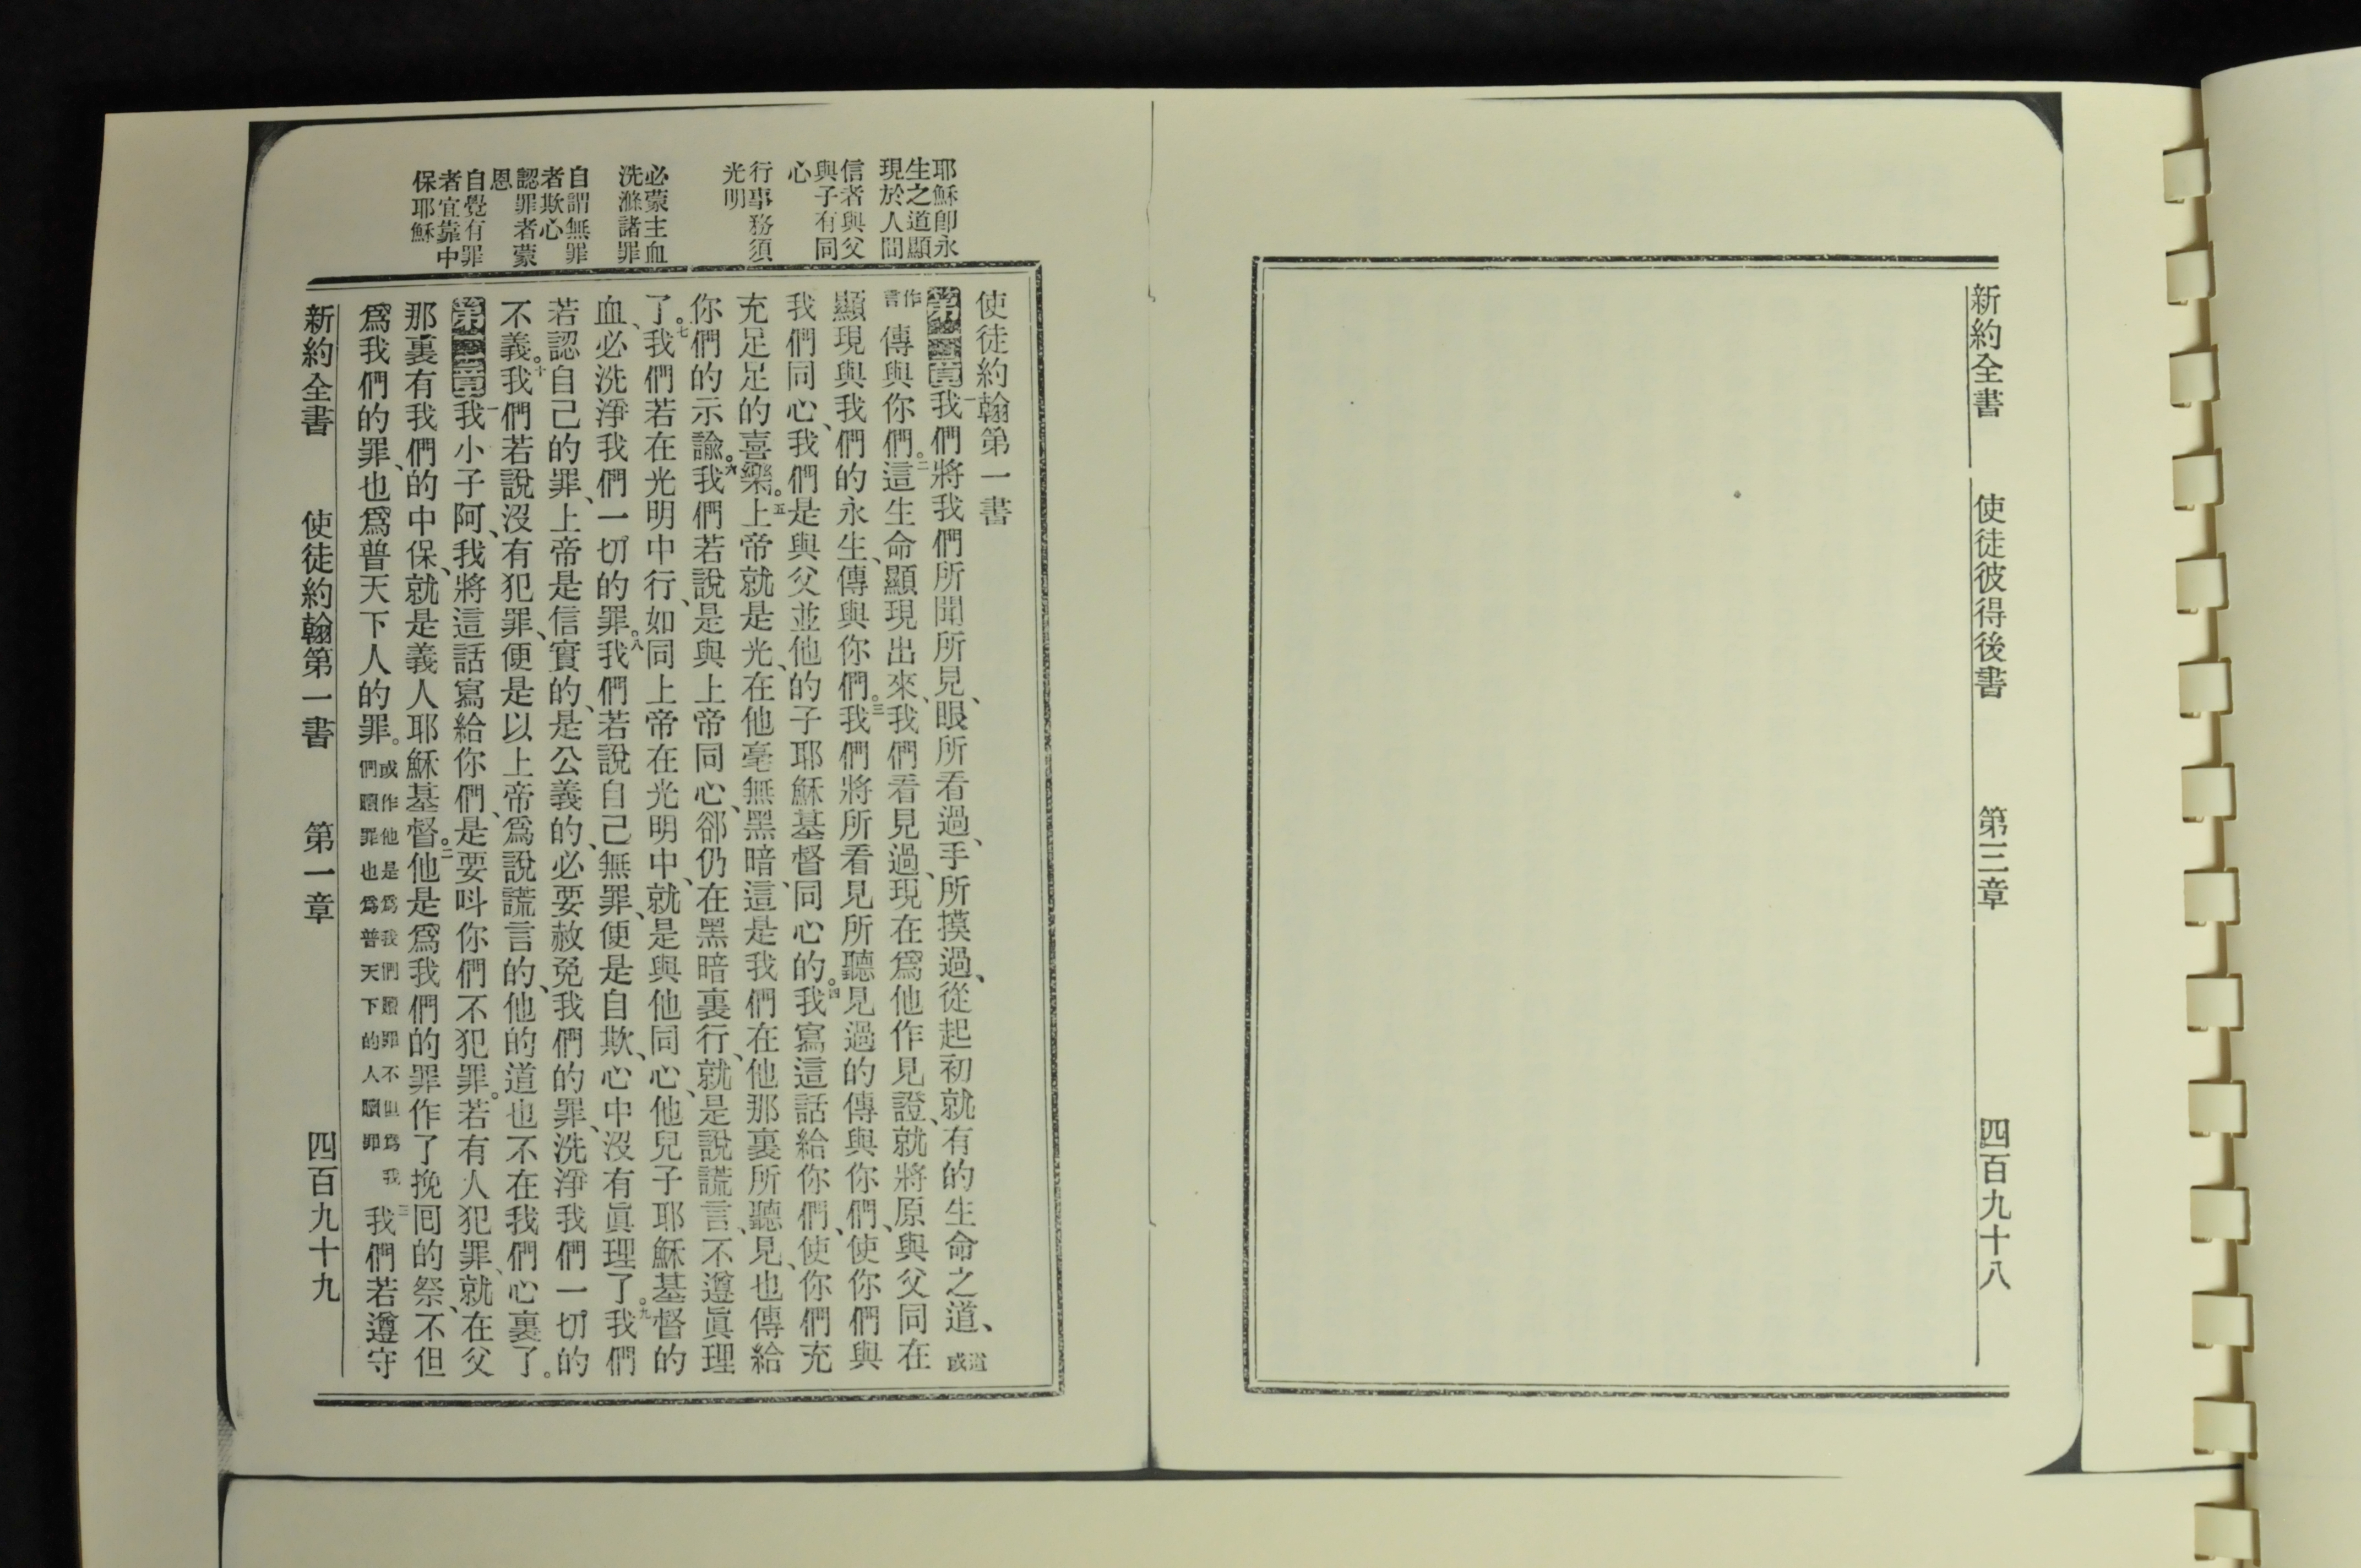 新約全書 使徒彼得後書 第三章 四百九十八
耶穌卽永
生之道顯
現於人間
信者與父
與子有同
心
行事務須
光明
必蒙主血
洗滌諸罪
自謂無罪
者欺心
認罪者蒙
恩
自覺有罪
者宜靠中
保耶穌
使徒約翰第一書
第一章一我們將我們所聞所見、眼所看過、手所摸過、從起初就有的生命之道、道或
作言傳與你們。二這生命顯現出來、我們看見過、現在爲他作見證、就將原與父同在
顯現與我們的永生、傳與你們。三我們將所看見所聽見過的傳與你們、使你們與
我們同心、我們是與父並他的子耶穌基督同心的。四我寫這話給你們、使你們充
充足足的喜樂。五上帝就是光、在他毫無黑暗、這是我們在他那裏所聽見、也傳給
你們的示諭。六我們若說是與上帝同心、郤仍在黑暗裏行、就是說謊言、不遵眞理
了。七我們若在光明中行、如同上帝在光明中、就是與他同心、他兒子耶穌基督的
血、必洗淨我們一切的罪。八我們若說自己無罪、便是自欺、心中沒有眞理了。九我們
若認自己的罪、上帝是信實的、是公義的、必要赦免我們的罪、洗淨我們一切的
不義。十我們若說沒有犯罪、便是以上帝爲說謊言的、他的道也不在我們心裏了。
第二章一我小子阿、我將這話寫給你們、是要呌你們不犯罪。若有人犯罪、就在父
那裏有我們的中保、就是義人耶穌基督。二他是爲我們的罪作了挽囘的祭、不但
爲我們的罪、也爲普天下人的罪。或作他是爲我們贖罪不但爲我們贖罪也爲普天下的人贖罪三我們若遵守
新約全書 使徒約翰第一書 第一章 四百九十九